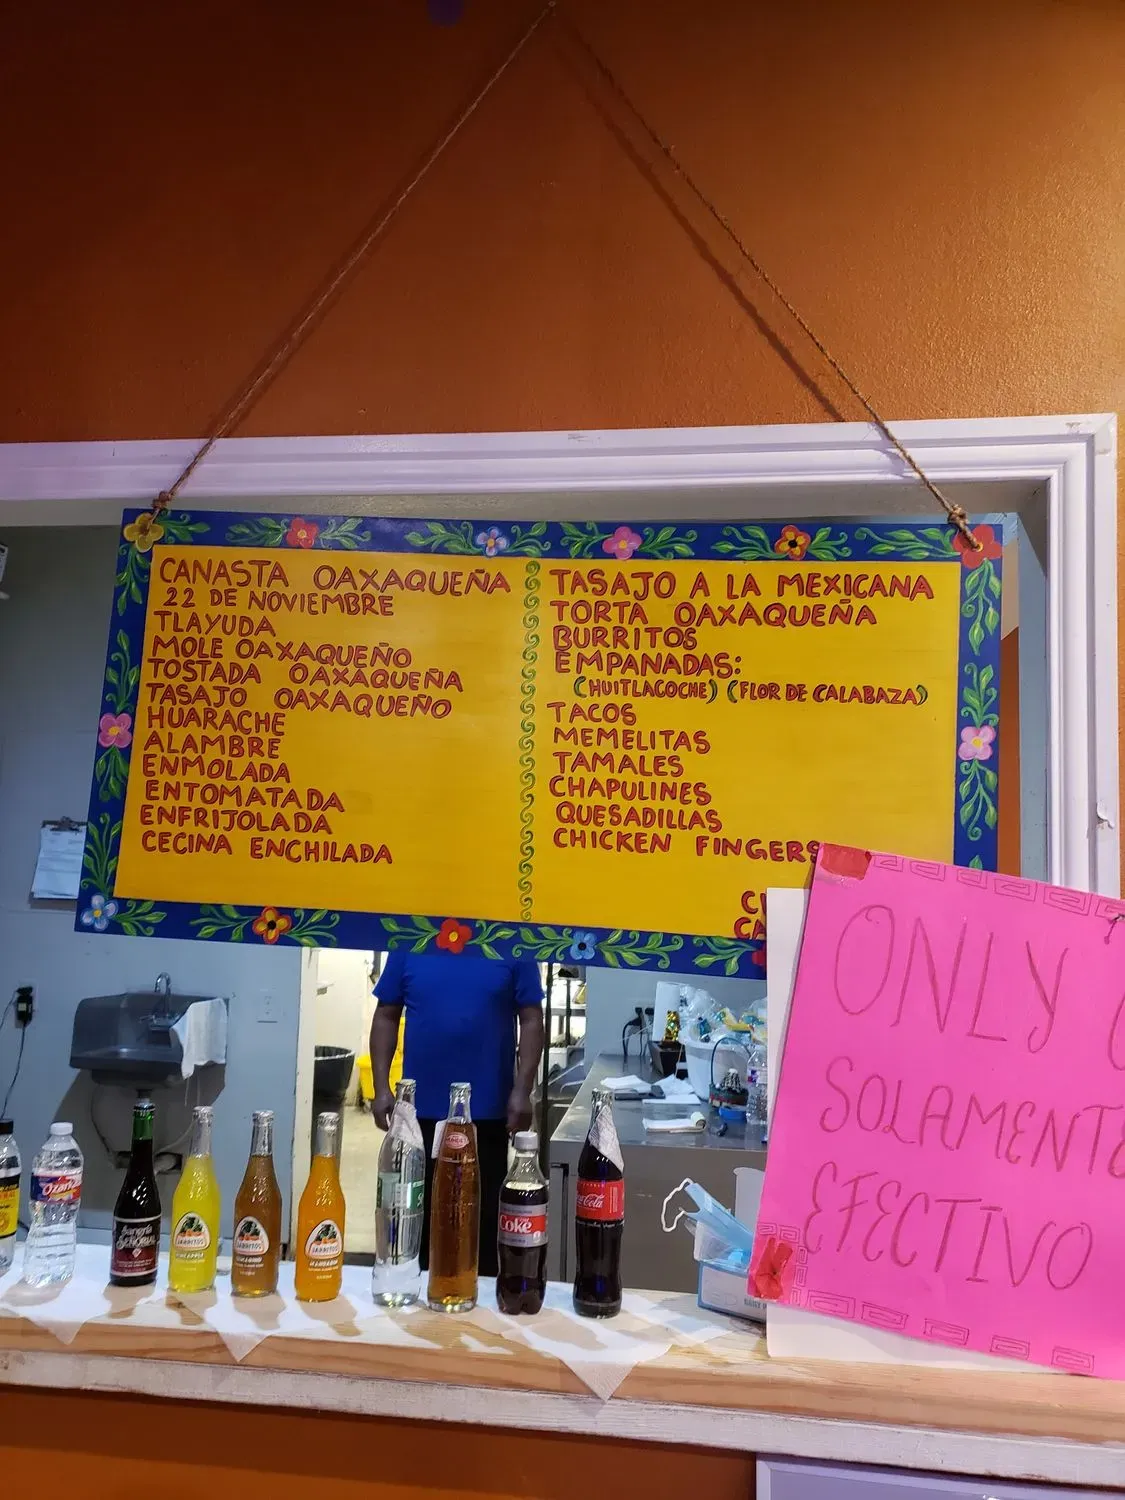 CANASTA OAXAQUEÑA
22 DE NOVIEMBRE
TLAYUDA
MOLE OAXAQUEÑO
TOSTADA OAXAQUEÑA
TASAJO OAXAQUEÑO
HUARACHE
ALAMBRE
ENMOLADA
ENTOMATADA
ENFRIJOLADA
CECINA ENCHILADA
TASAJO A LA MEXICANA
TORTA OAXAQUEÑA
BURRITOS
EMPANADAS:
(HUITLACOCHE) (FLOR DE CALABAZA)
TACOS
MEMELITAS
TAMALES
CHAPULINES
QUESADILLAS
CHICKEN FINGERS
ONLY
SOLAMENTE
EFECTIVO
Ozarka
Sangría
SEÑORIAL
JARRITOS
PINEAPPLE
JARRITOS
JARRITOS
MANDARIN
Coke
Coca-Cola